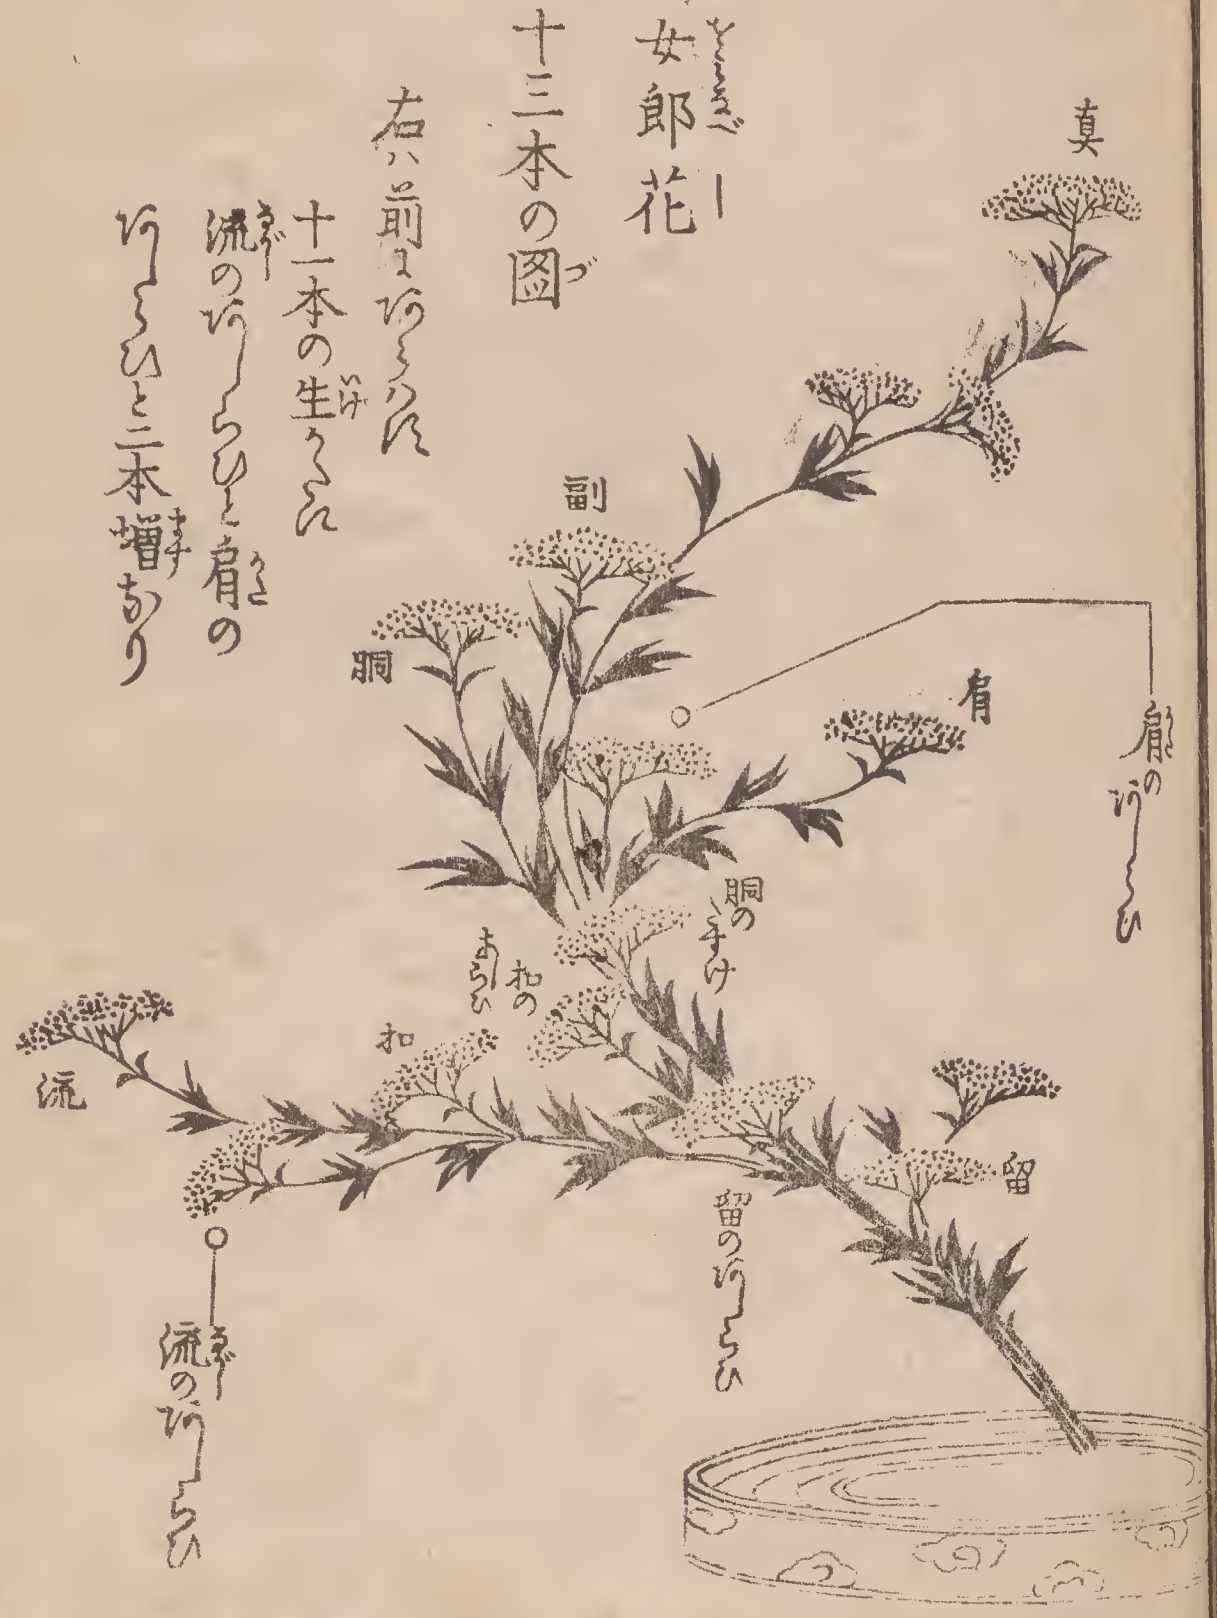 女郎花
十三本の図
右ハ前にあらハす
十一本の生かたに
流のあしらひと肩の
あしらひと二本増なり
真
副
胴
肩
肩の
あしらひ
胴の
たすけ
扣の
あしらひ
扣
流
留
留のあしらひ
流のあしらひ